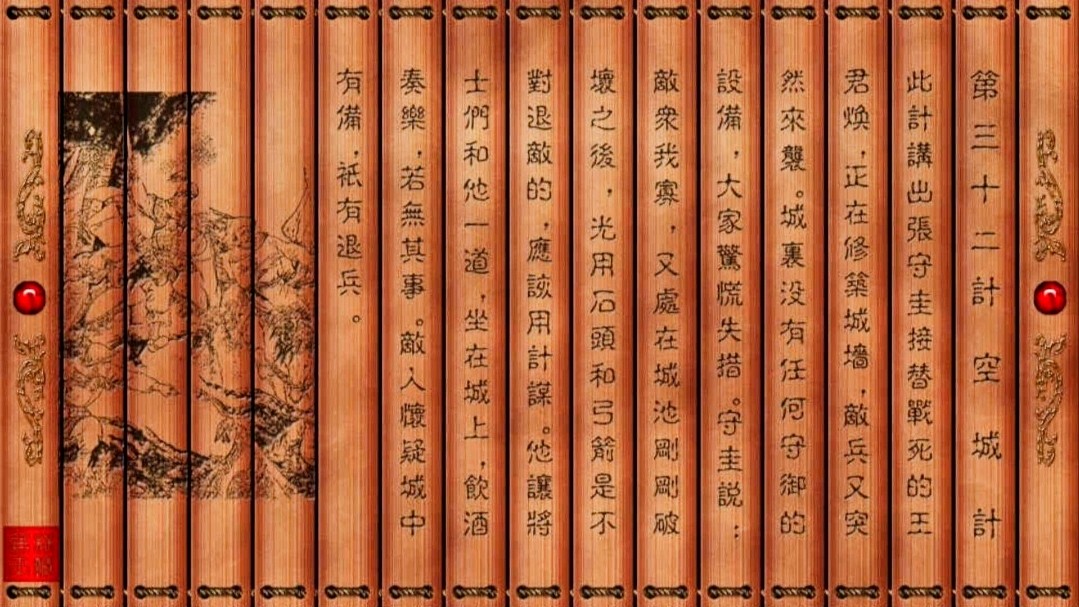 第三十二計 空城計
此計講出張守圭接替戰死的王
君焕，正在修築城墻，敵兵又突
然來襲。城裏没有任何守御的
設備，大家驚慌失措。守圭説：
敵衆我寡，又處在城池剛剛破
壞之後，光用石頭和弓箭是不
對退敵的，應該用計謀。他讓將
士們和他一道，坐在城上，飲酒
奏樂，若無其事。敵人懷疑城中
有備，祇有退兵。